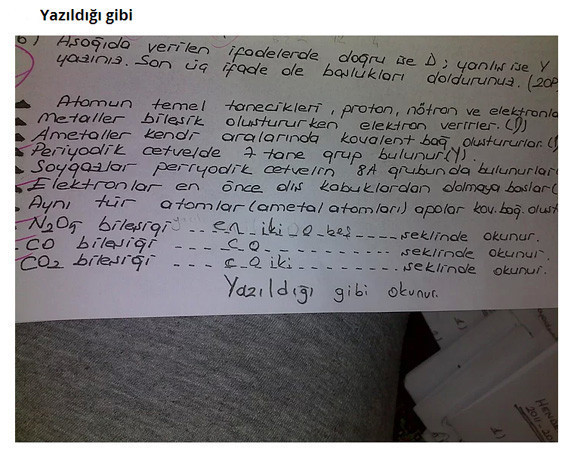 Yazıldığı gibi
6) Aşağıda verilen ifadelerde doğru ise D; yanlış ise Y
yazınız. Son üç ifade de boşlukları doldurunuz. (20P
Atomun temel tanecikleri, proton, nötron ve elektronla
Metaller bileşik oluştururken elektron verirler. (D)
Ametaller kendi aralarında kovalent bağ oluştururlar. (
Periyodik cetvelde 7 tane grup bulunur (Y).
Soygazlar perryodik cetvelin 8A grubunda bulunurlar
Elektronlar en önce dış kabuklardan dolmaya başlar (
Aynı tür atomlar (ametal atomları) apolar kov. bağ. oluşt
N₂O₅ bileşiği en iki O beş şeklinde okunur.
CO bileşiği C O şeklinde okunur.
CO₂ bileşiği C O iki şeklinde okunur.
Yazıldığı gibi okunur.